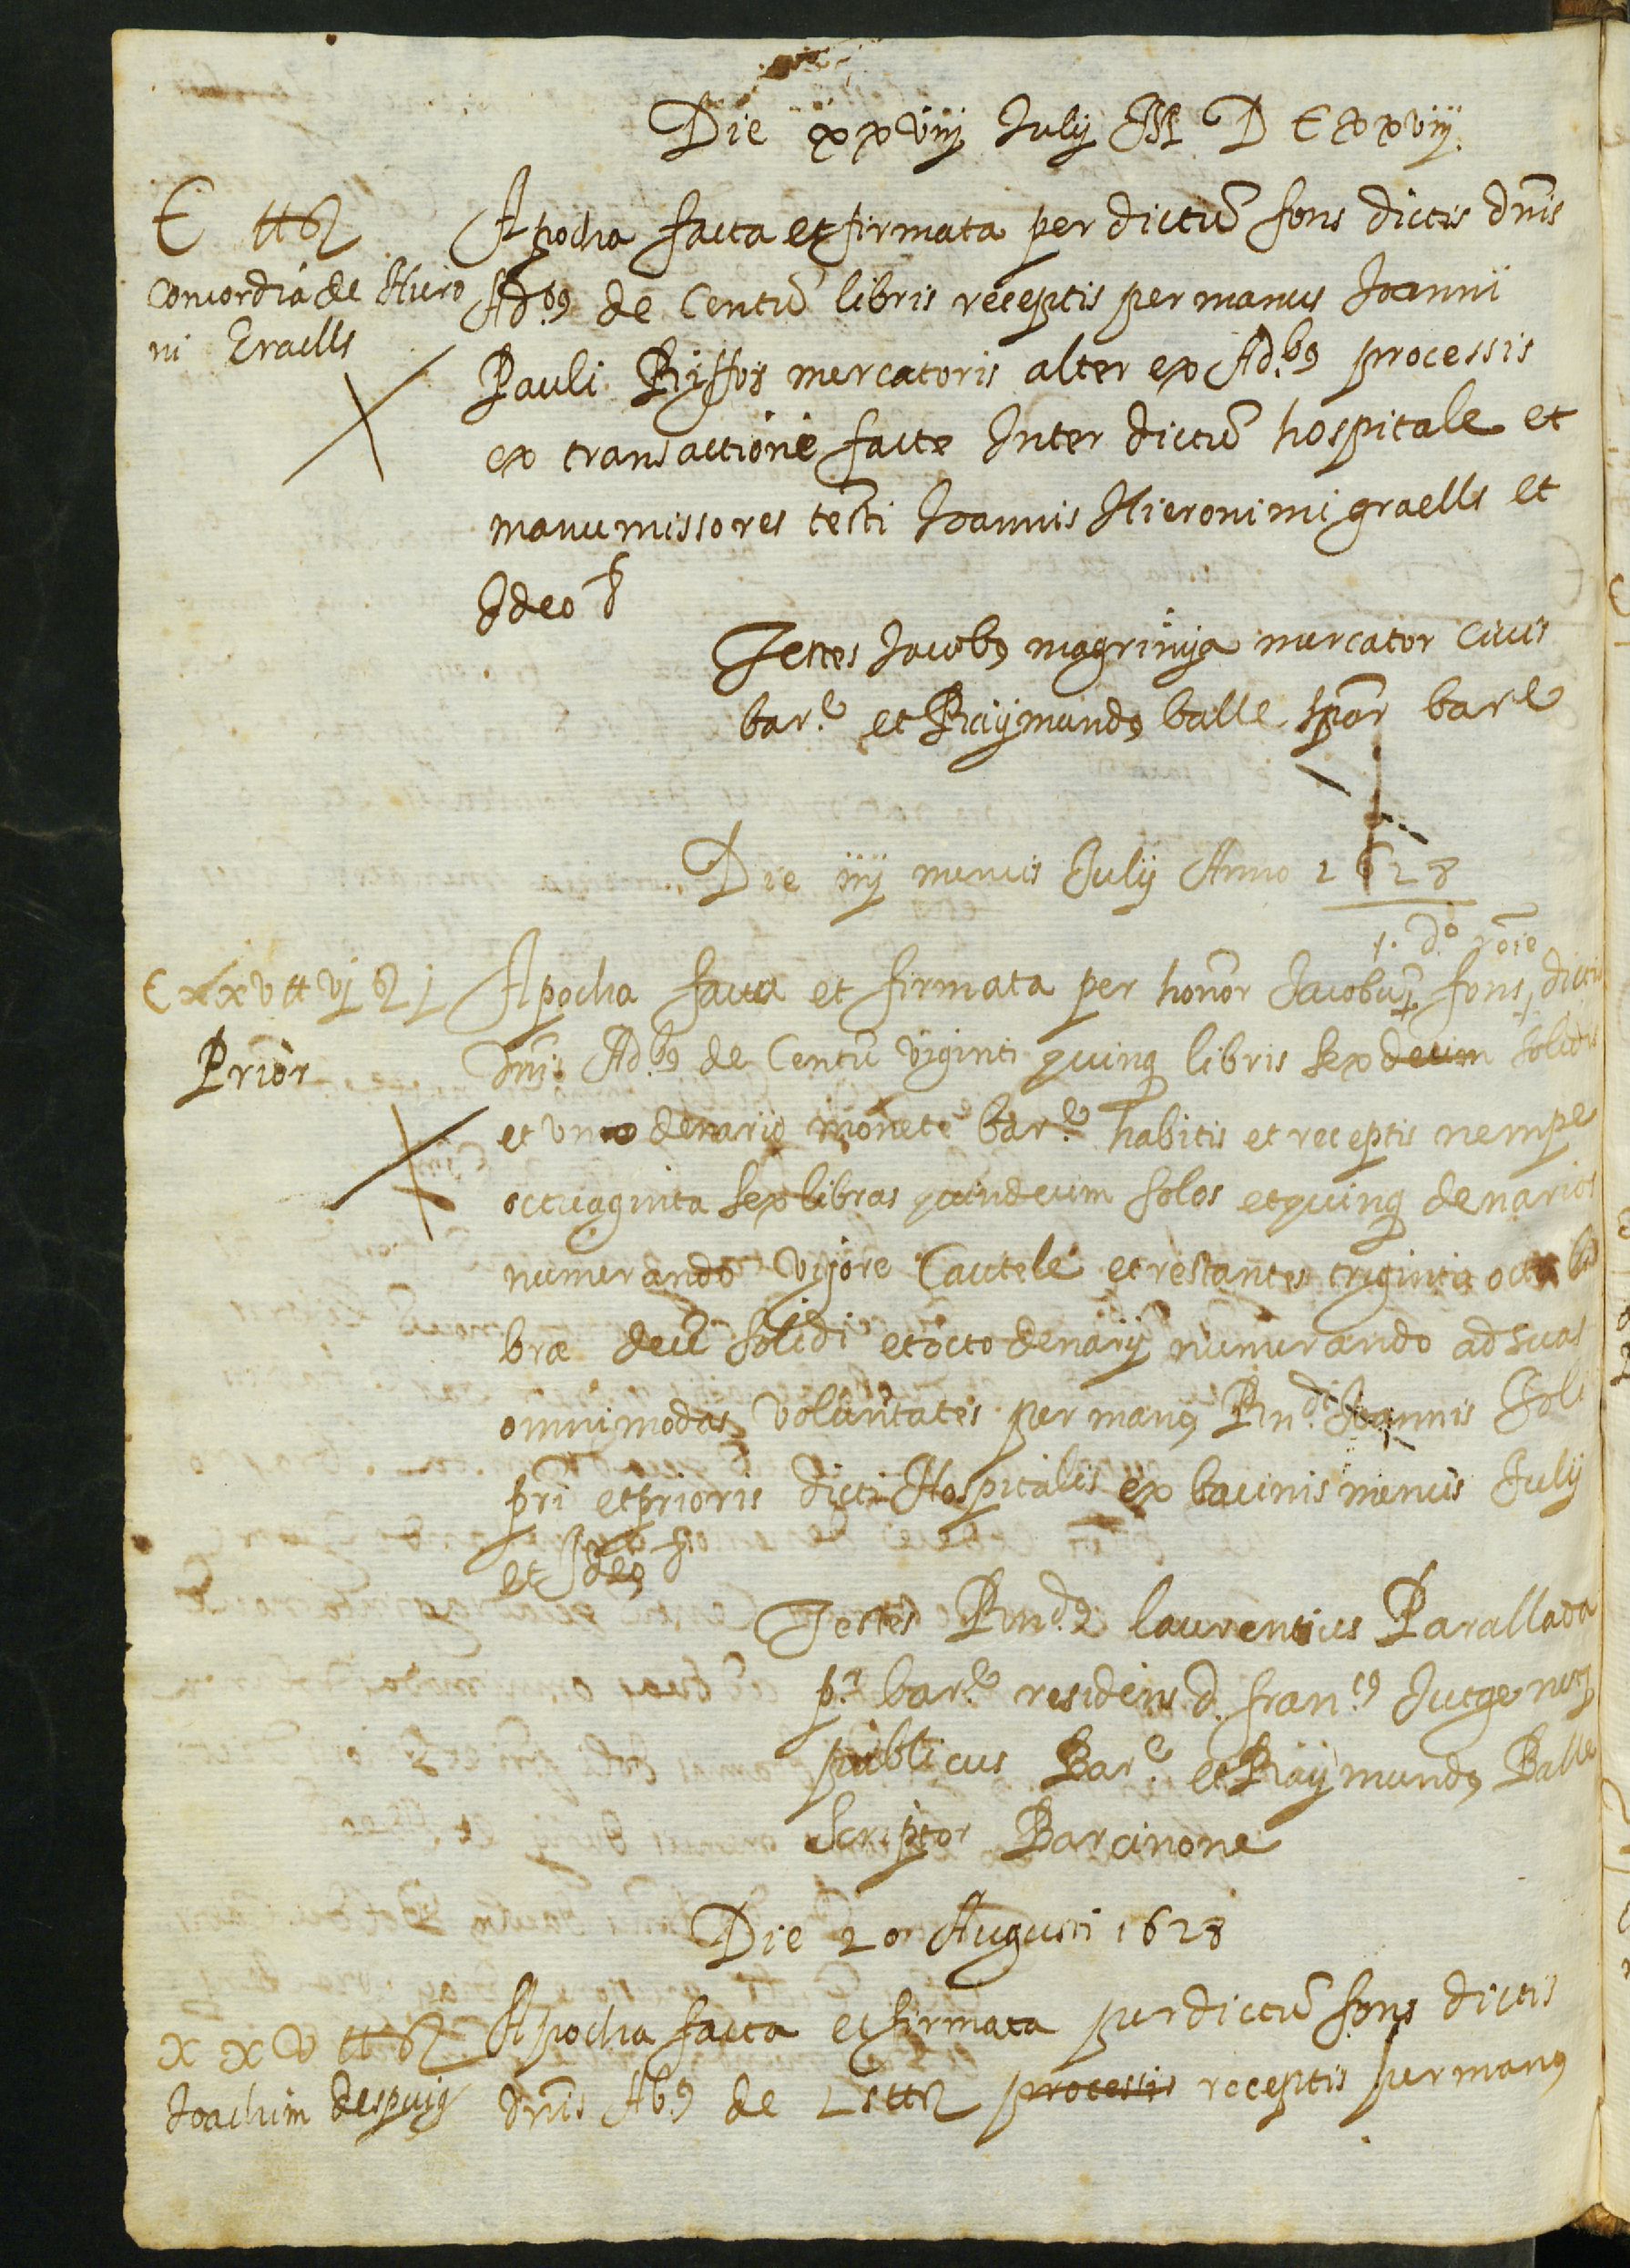 Die xxviij Julij M D C xxviij.
C ₶ ß
Concordia de Hiero
ni Eraells
Apocha facta et firmata per dictū fons dictis dn̄is
Ad.bꝯ de Centū libris receptis per manus Joannii
Pauli Riffos mercatoris alter ex Ad.bꝯ processis
ex transactione facte Inter dictū hospitale et
manumissores testi Joannis Hieronimi graells et
Ideo &
Testes Jacobꝯ magrinya mercator civis
bar.e et Raÿmundꝯ balle spōr bar.e
Die iiij mensis Julij Anno 1628
Cxxv ₶ vj ß j
Prior
f. d.o rōie
Apocha facta et firmata per honor Jacobū fons, dictis
dn̄is Ad.bꝯ de Centū viginti quinq libris sexdecim solidis
et uno denario monete bar.e habitis et receptis nempe
octuaginta sex libras quindecim solos et quinq denarios
numerando vijore Cautele et restantes triginta octo li
bræ decē solidi et octo denarij numerando ad suas
omnimodas voluntates per manꝯ Rnd.i Joannis Soli
pri et prioris dicti Hospitalis ex bacinis mensis Julij
et Ideo &
Testes Rnd.s laurentius Parallada
p.r bar.e residens d. fran.cꝯ Jutge not
publicus Bar.e et Raÿmundꝯ Balle
Scriptor Barcinone
Die 20 Augusti 1628
x x v ₶ ß
Joachim despuig
Apocha facta et firmata per dictū fons dictis
dn̄is Ab.ꝯ de ₶ß processis receptis per manꝯ